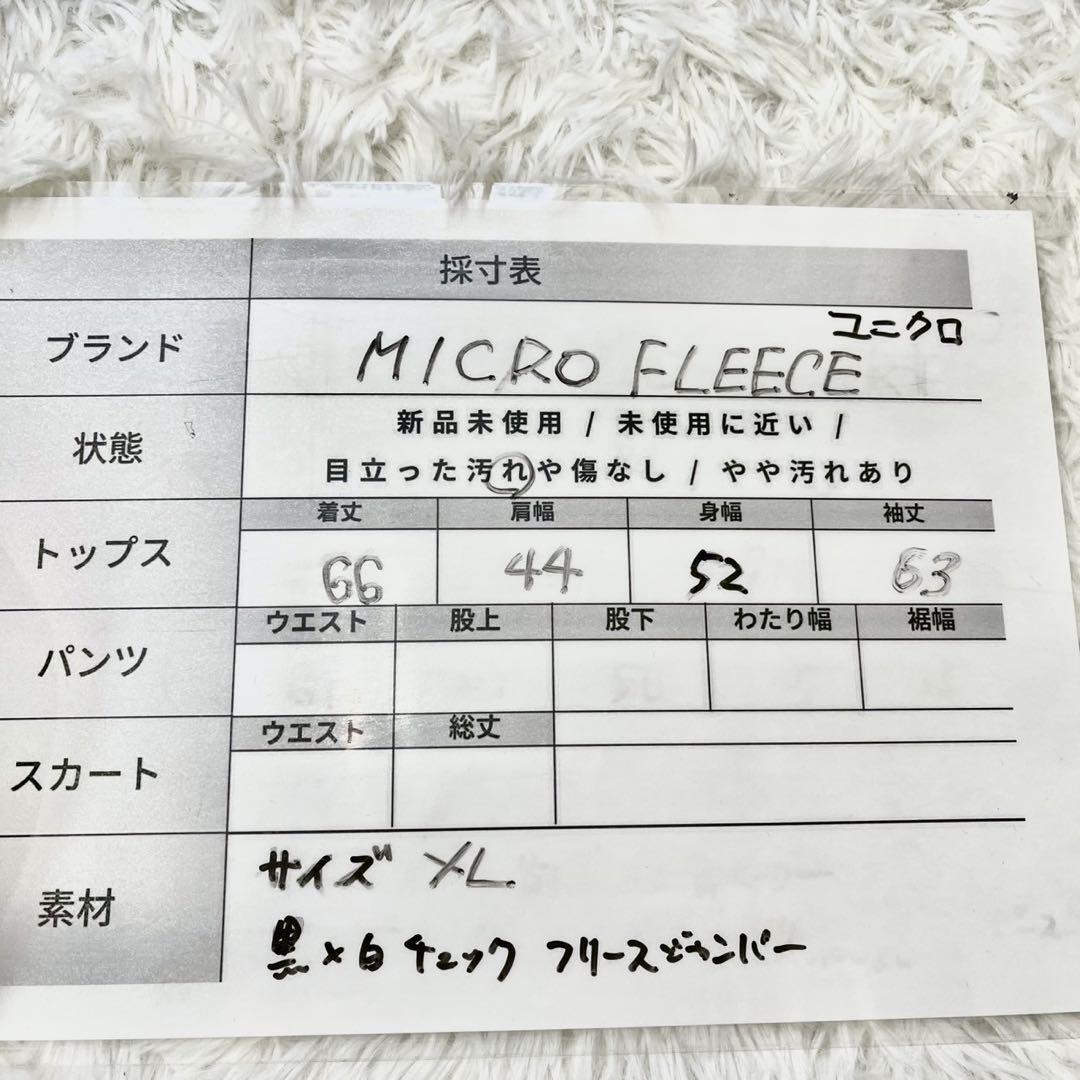 採寸表
ブランド
ユニクロ
MICRO FLEECE
状態
新品未使用 / 未使用に近い /
目立った汚れや傷なし / やや汚れあり
トップス
着丈 肩幅 身幅 袖丈
66 44 52 63
パンツ
ウエスト 股上 股下 わたり幅 裾幅
スカート
ウエスト 総丈
素材
サイズ XL
黒×白チェック フリースジャンバー